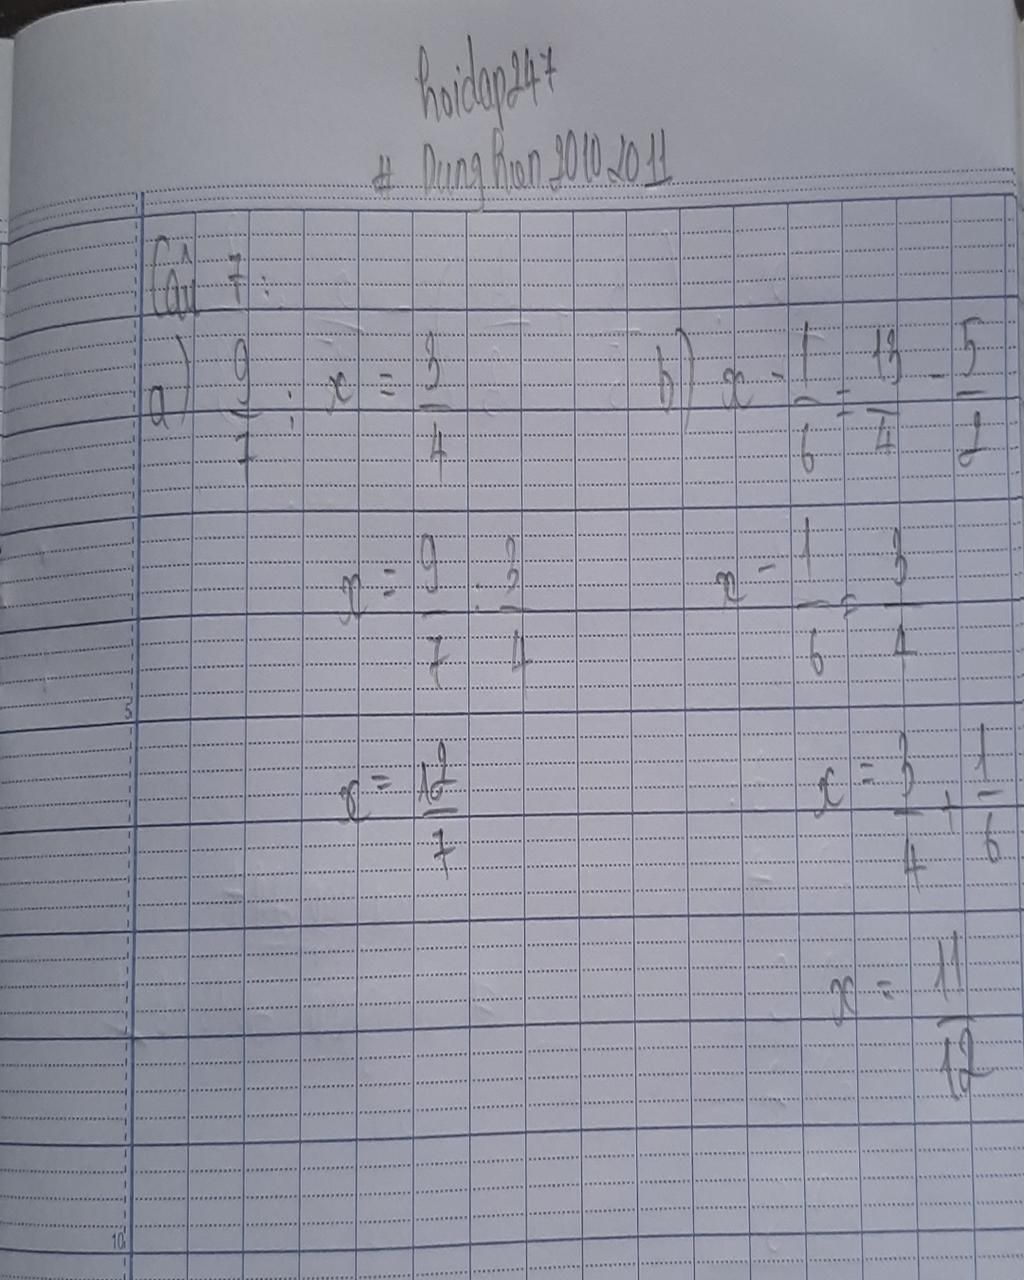 hoidap247
# Dung Rion 2010 2011
Câu 7 :
a) 9/7 : x = 3/4
x = 9/7 : 3/4
x = 12/7
b) x - 1/6 = 13/4 - 5/2
x - 1/6 = 3/4
x = 3/4 + 1/6
x = 11/12
5
10